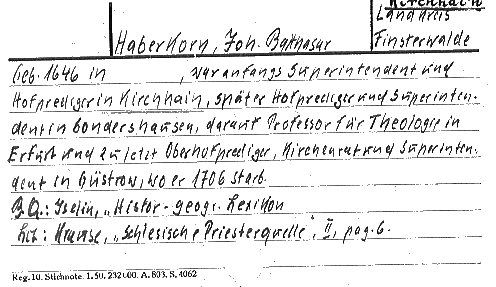 Kirchhain
Landkreis
Haberkorn, Joh. Balthasar Finsterwalde
Geb. 1646 in , war anfangs Superintendent und
Hofprediger in Kirchhain, später Hofprediger und Superinten-
dent in Sondershausen, darauf Professor für Theologie in
Erfurt und zuletzt Oberhofprediger, Kirchenrat und Superinten-
dent in Güstrow, wo er 1706 starb.
B.Q.: Iselin, „Histor-geogr. Lexikon
Lit: Krause, „Schlesische Priesterquelle", II, pag. 6.
Reg. 10. Stichnote. 1. 50. 232000. A. 803. S. 4062